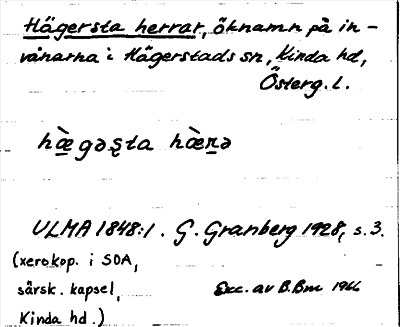 Hägersta herrar, öknamn på in-
vånarna i Hägerstads sn, Kinda hd,
Österg. l.
hæ̀gəʂta hæ̀rə
ULMA 1848:1. G. Granberg 1928, s. 3.
(xerokop. i SOA,
särsk. kapsel,
Kinda hd.)
Exc. av B.Bm 1966